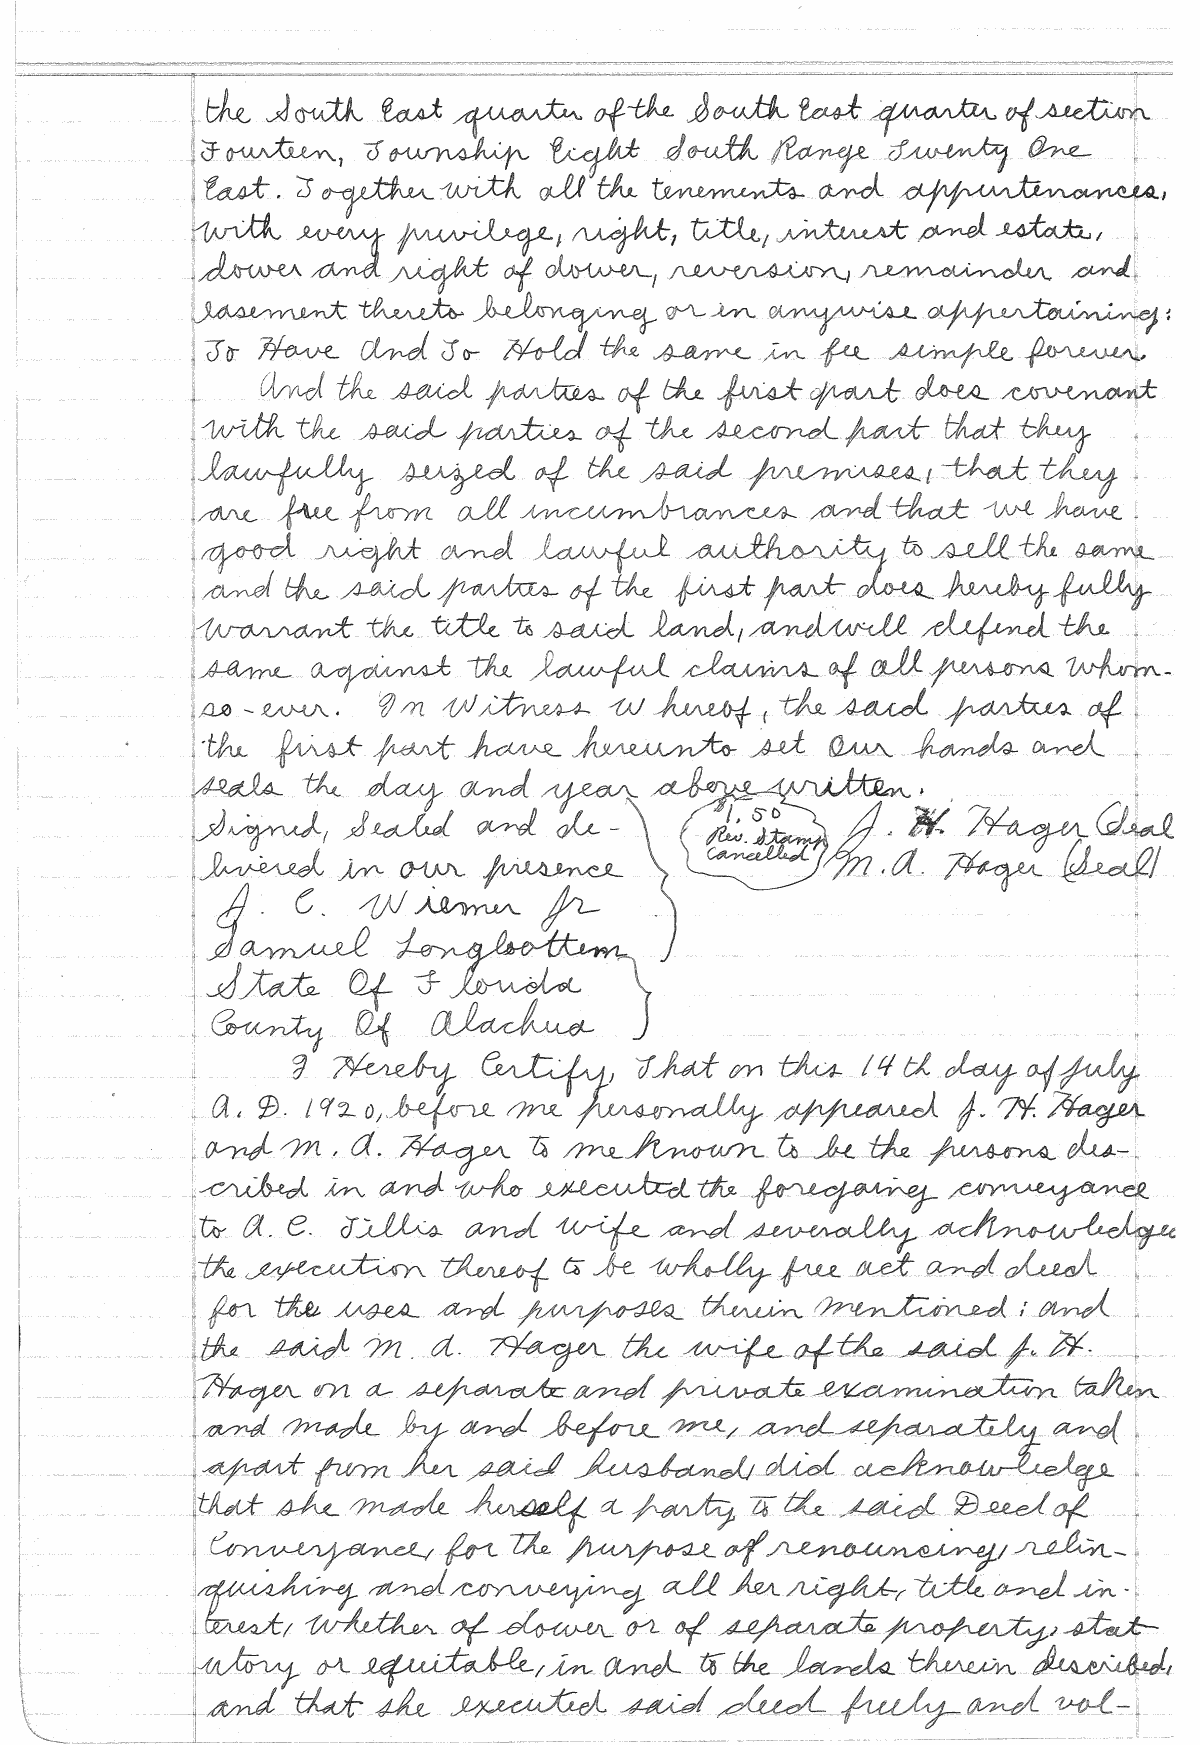 the South East quarter of the South East quarter of section
Fourteen, Township Eight South Range Twenty One
East. Together with all the tenements and appurtenances,
with every privilege, right, title, interest and estate,
dower and right of dower, reversion, remainder and
easement thereto belonging or in anywise appertaining:
To Have And To Hold the same in fee simple forever.
And the said parties of the first part does covenant
with the said parties of the second part that they
lawfully seized of the said premises, that they
are free from all incumbrances and that we have
good right and lawful authority to sell the same
and the said parties of the first part does hereby fully
warrant the title to said land, and will defend the
same against the lawful claims of all persons whom-
so-ever. In Witness Whereof, the said parties of
the first part have hereunto set Our hands and
seals the day and year above written.
Signed, Sealed and de-
livered in our presence
J. C. Wiemer Jr
Samuel Longbottem
$1.50
Rev. Stamp
Cancelled
J. H. Hager (Seal
M. A. Hager (Seal)
State Of Florida
County Of Alachua
I Hereby Certify, That on this 14th day of July
A. D. 1920, before me personally appeared J. H. Hager
and M. A. Hager to me known to be the persons des-
cribed in and who executed the foregoing conveyance
to A. C. Tillis and wife and severally acknowledges
the execution thereof to be wholly free act and deed
for the uses and purposes therein mentioned; and
the said M. A. Hager the wife of the said J. H.
Hager on a separate and private examination taken
and made by and before me, and separately and
apart from her said husband, did acknowledge
that she made herself a party to the said Deed of
Conveyance, for the purpose of renouncing, relin-
quishing and conveying all her right, title and in-
terest, whether of dower or of separate property, stat
utory or equitable, in and to the lands therein described,
and that she executed said deed freely and vol-